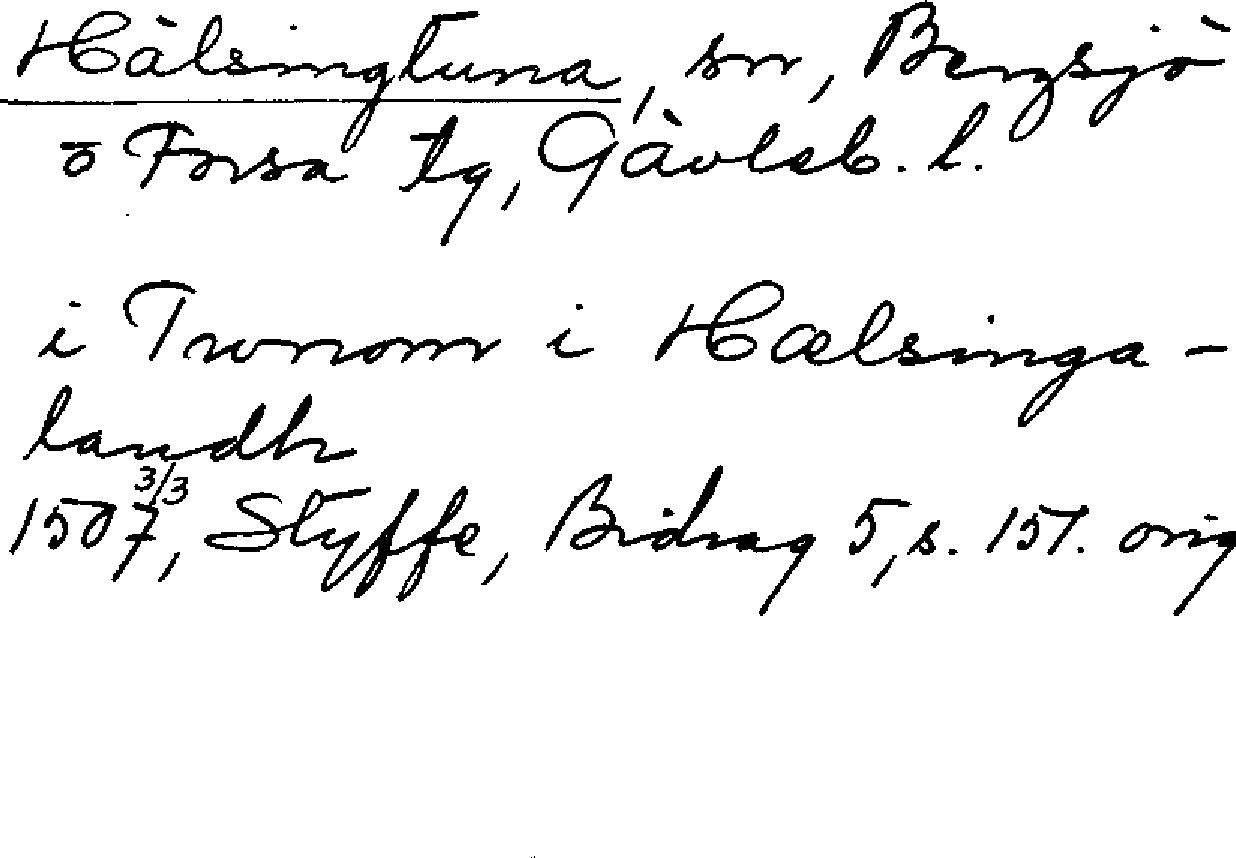 Hälsingtuna, sn, Bergsjö
o Forsa tg, Gävleb. l.
i Twnom i Hælsinga-
landh
1507 3/3, Styffe, Bidrag 5, s. 157. orig